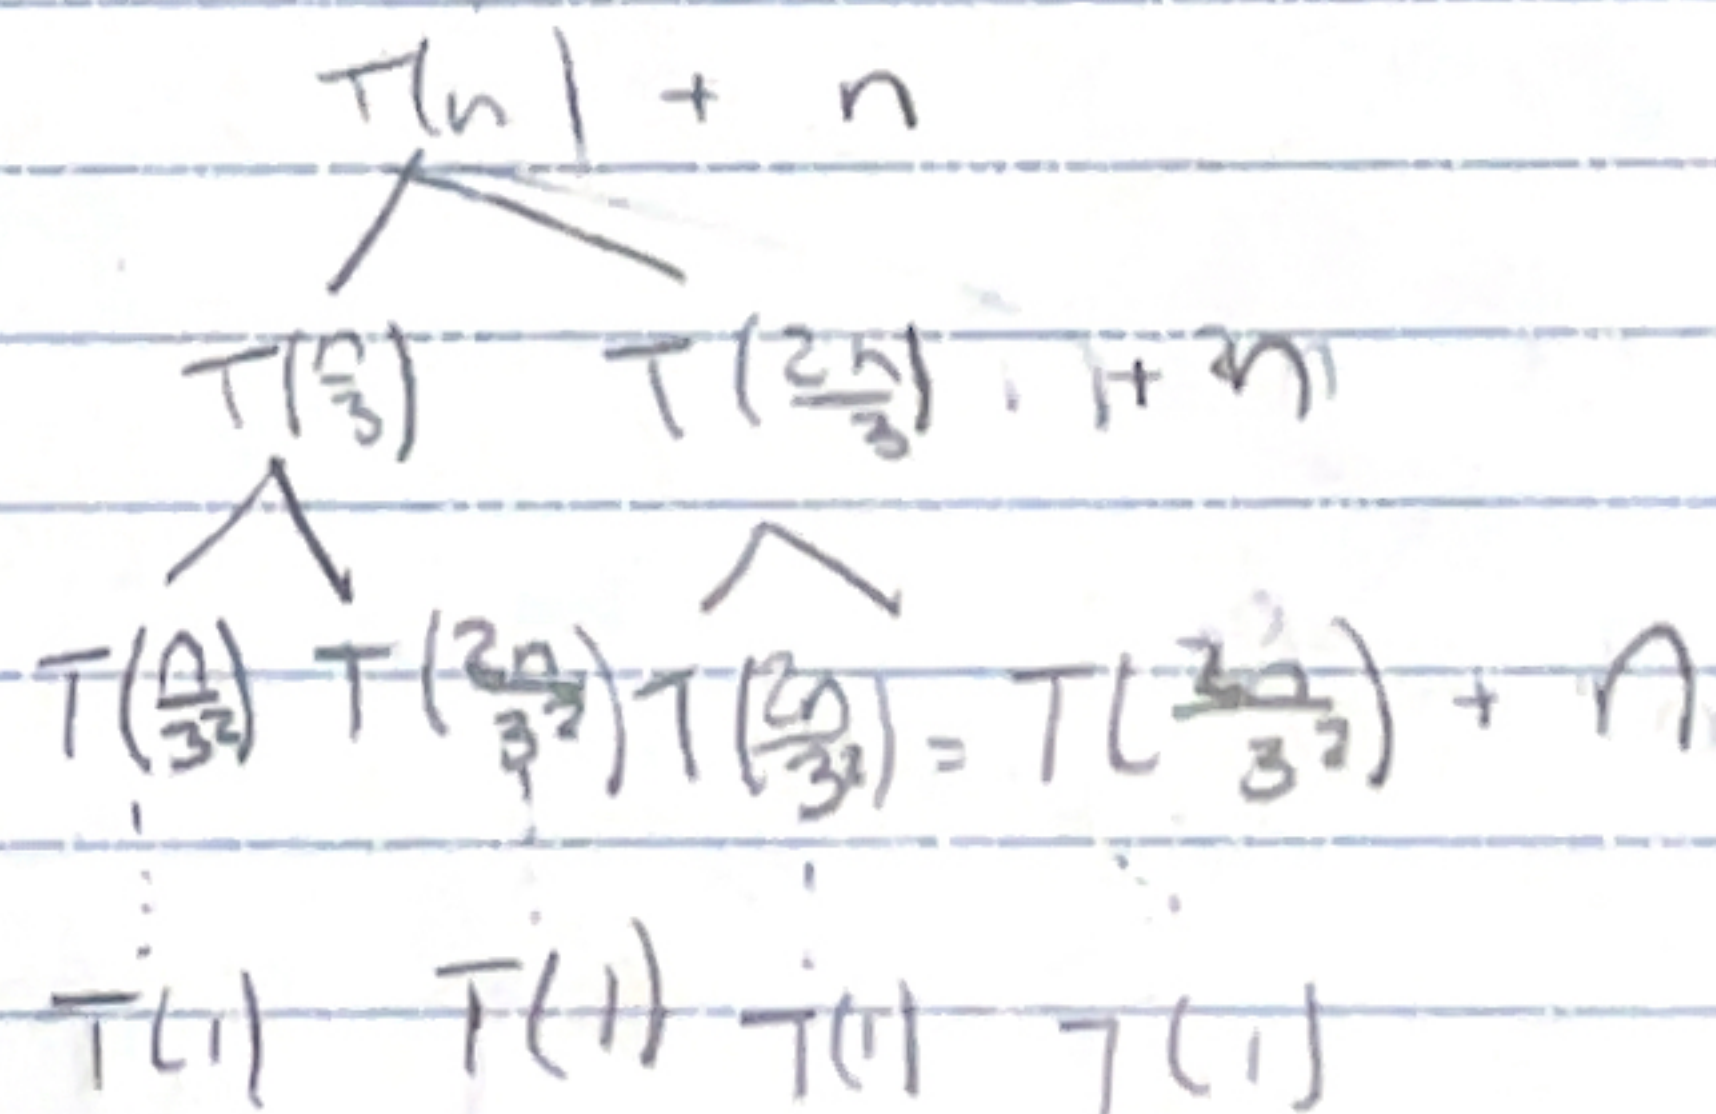 T(n) + n
T(n/3) T(2n/3) + n
T(n/3²) T(2n/3²) T(2n/3²) = T(2n/3²) + n
T(1) T(1) T(1) T(1)